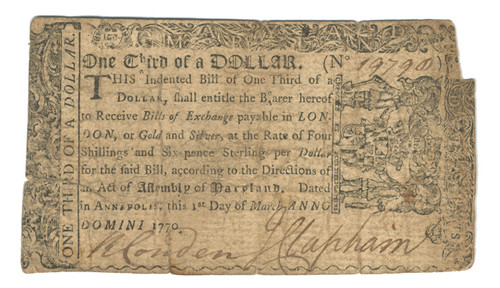 One Third of a DOLLAR. (No 19790)
THIS Indented Bill of One Third of a
DOLLAR, ſhall entitle the Bearer hereof
to Receive Bills of Exchange payable in LON-
DON, or Gold and Silver, at the Rate of Four
Shillings and Six-pence Sterling per Dollar
for the ſaid Bill, according to the Directions of
an Act of Aſſembly of Maryland. Dated
in ANNAPOLIS, this 1st Day of March, ANNO
DOMINI 1770.
ONE THIRD OF A DOLLAR
W Couden J Clapham